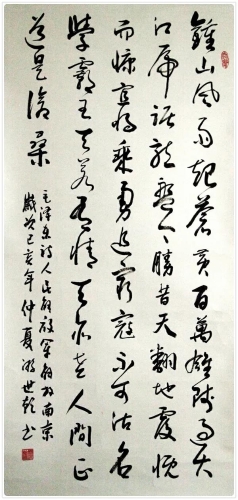 鐘山風雨起蒼黃百萬雄師過大
江虎踞龍盤今勝昔天翻地覆慨
而慷宜將剩勇追窮寇不可沽名
學霸王天若有情天亦老人間正
道是滄桑
毛澤東詩人民解放軍解放南京
歲次己亥年仲夏游世书